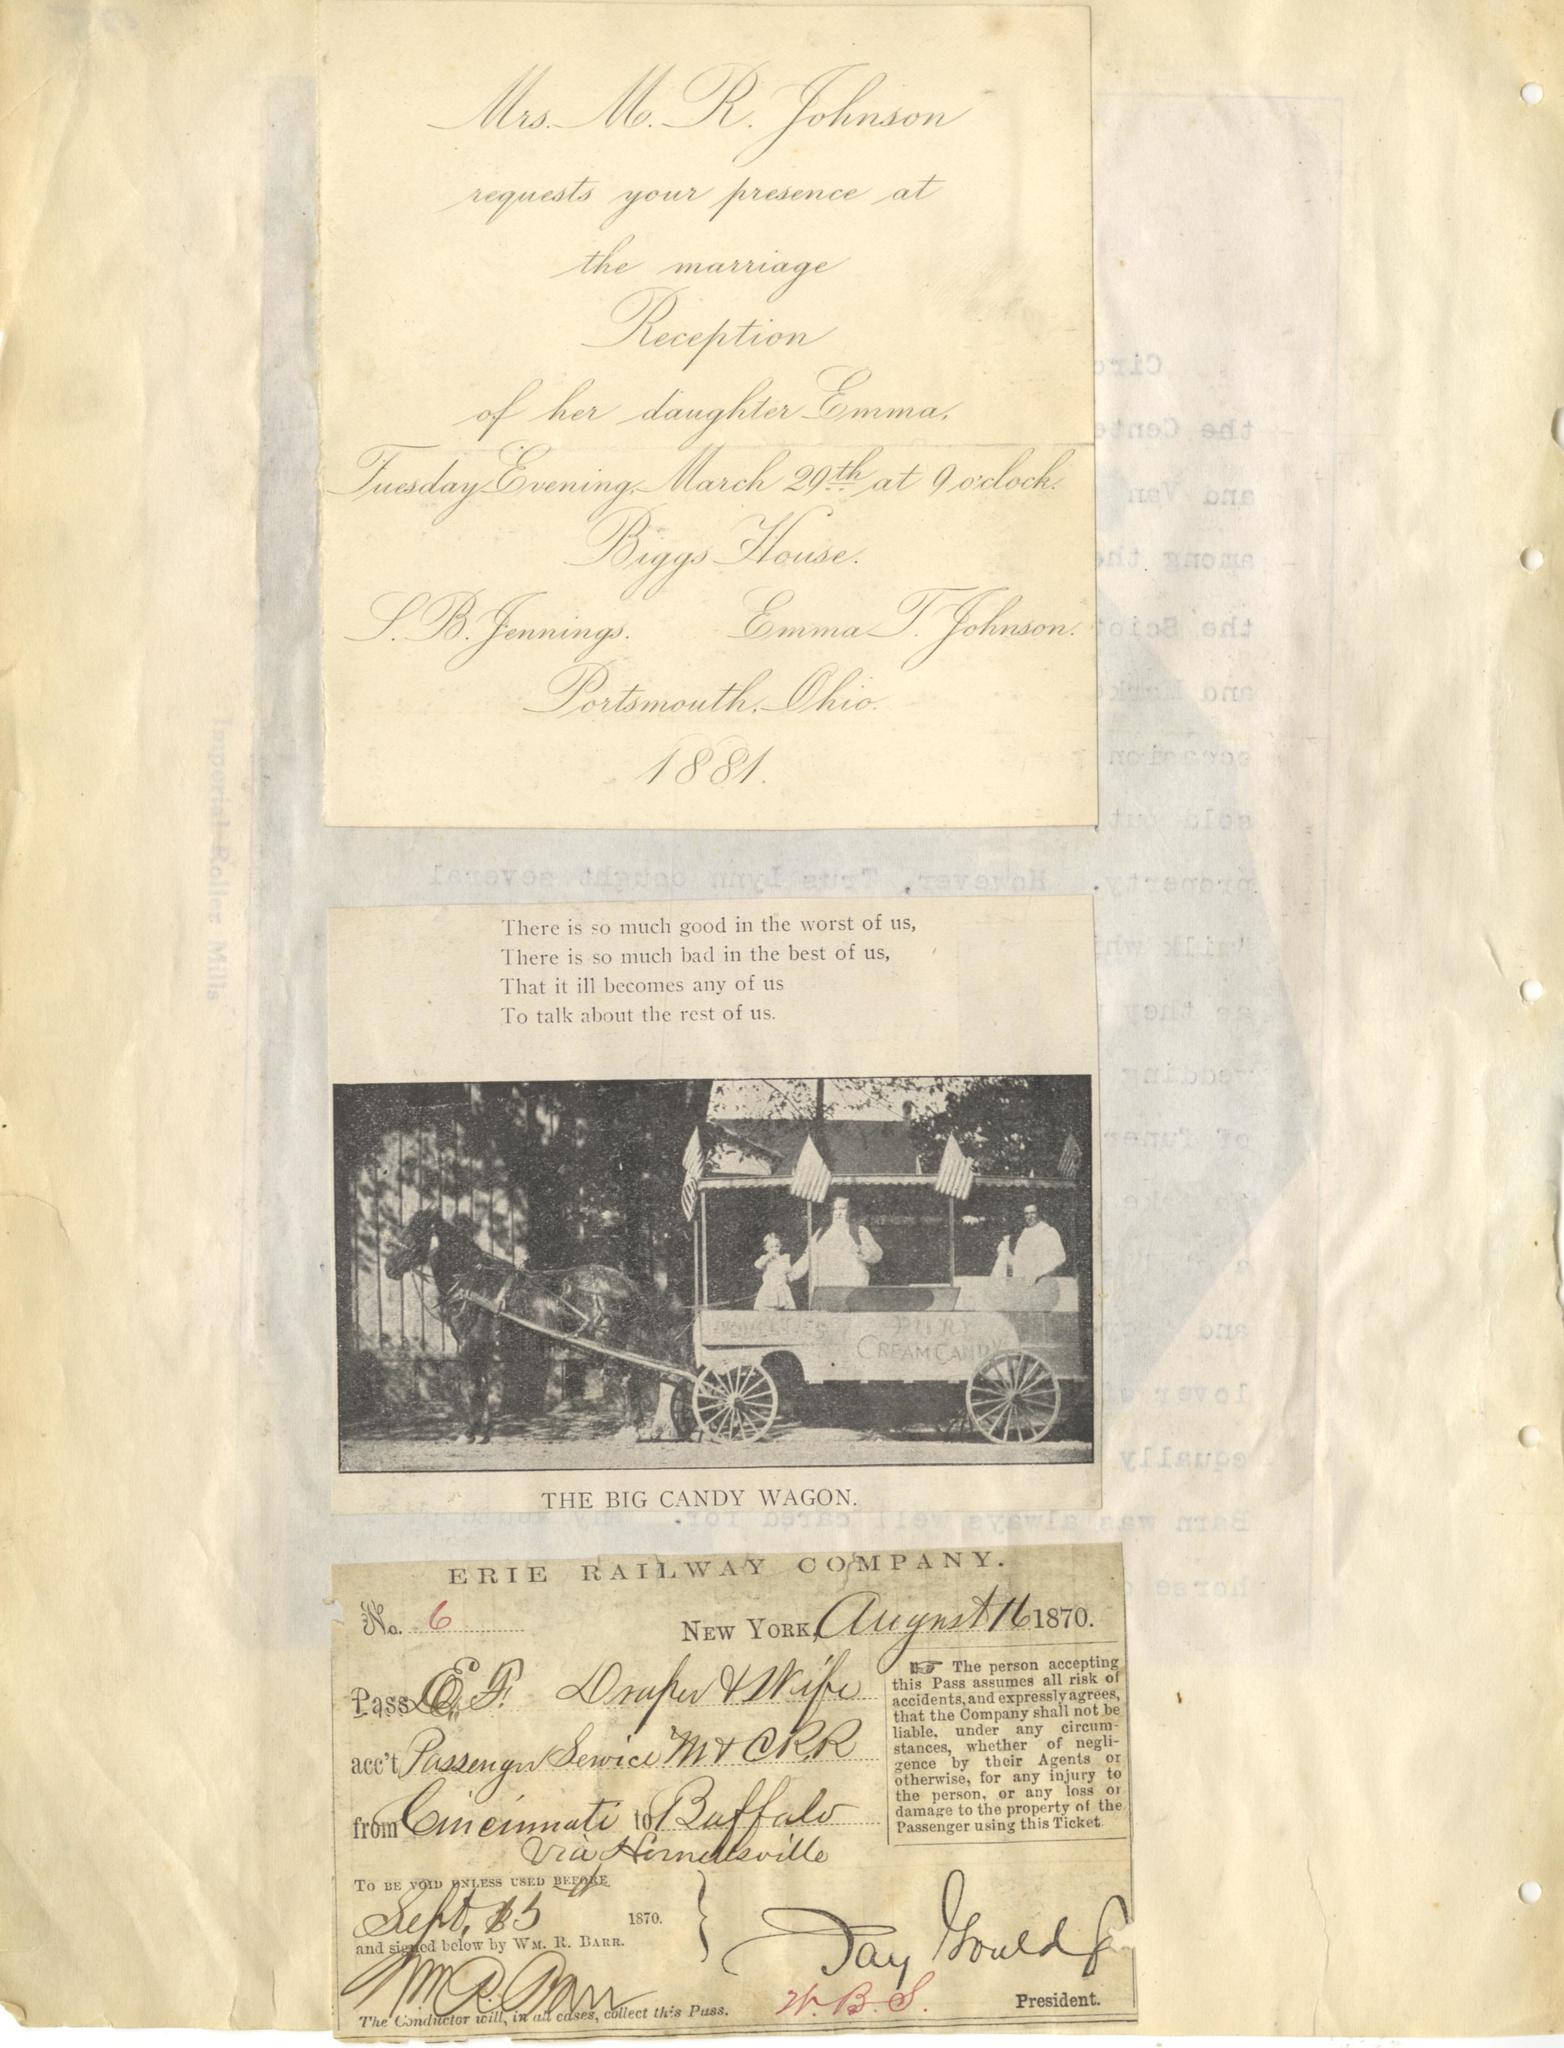 Mrs. M. R. Johnson
requests your presence at
the marriage
Reception
of her daughter Emma,
Tuesday Evening, March 29th at 9 o'clock.
Biggs House.
S. B. Jennings. Emma T. Johnson.
Portsmouth, Ohio.
1881.
There is so much good in the worst of us,
There is so much bad in the best of us,
That it ill becomes any of us
To talk about the rest of us.
CREAM CANDY
THE BIG CANDY WAGON.
ERIE RAILWAY COMPANY.
No. 6 NEW YORK, August 16 1870.
Pass E. F. Draper & Wife
acc't Passenger Service M & C R.R
from Cincinnati to Buffalo
Via Hornellsville
☞ The person accepting
this Pass assumes all risk of
accidents, and expressly agrees,
that the Company shall not be
liable, under any circum-
stances, whether of negli-
gence by their Agents or
otherwise, for any injury to
the person, or any loss or
damage to the property of the
Passenger using this Ticket.
TO BE VOID UNLESS USED BEFORE
Sept. 15 1870.
and signed below by WM. R. BARR.
Wm R. Barr
Jay Gould
W. B. S. President.
The Conductor will, in all cases, collect this Pass.
Imperial Roller Mills
Circ
the Cente
and Van
among the
the Sciot
and Marke
occasion
sold out
property. However, Trus Lynn bought several
milk wh
as they
wedding
of funer
to take
and
lover of
equally
Barn was always well cared for. Any
horse